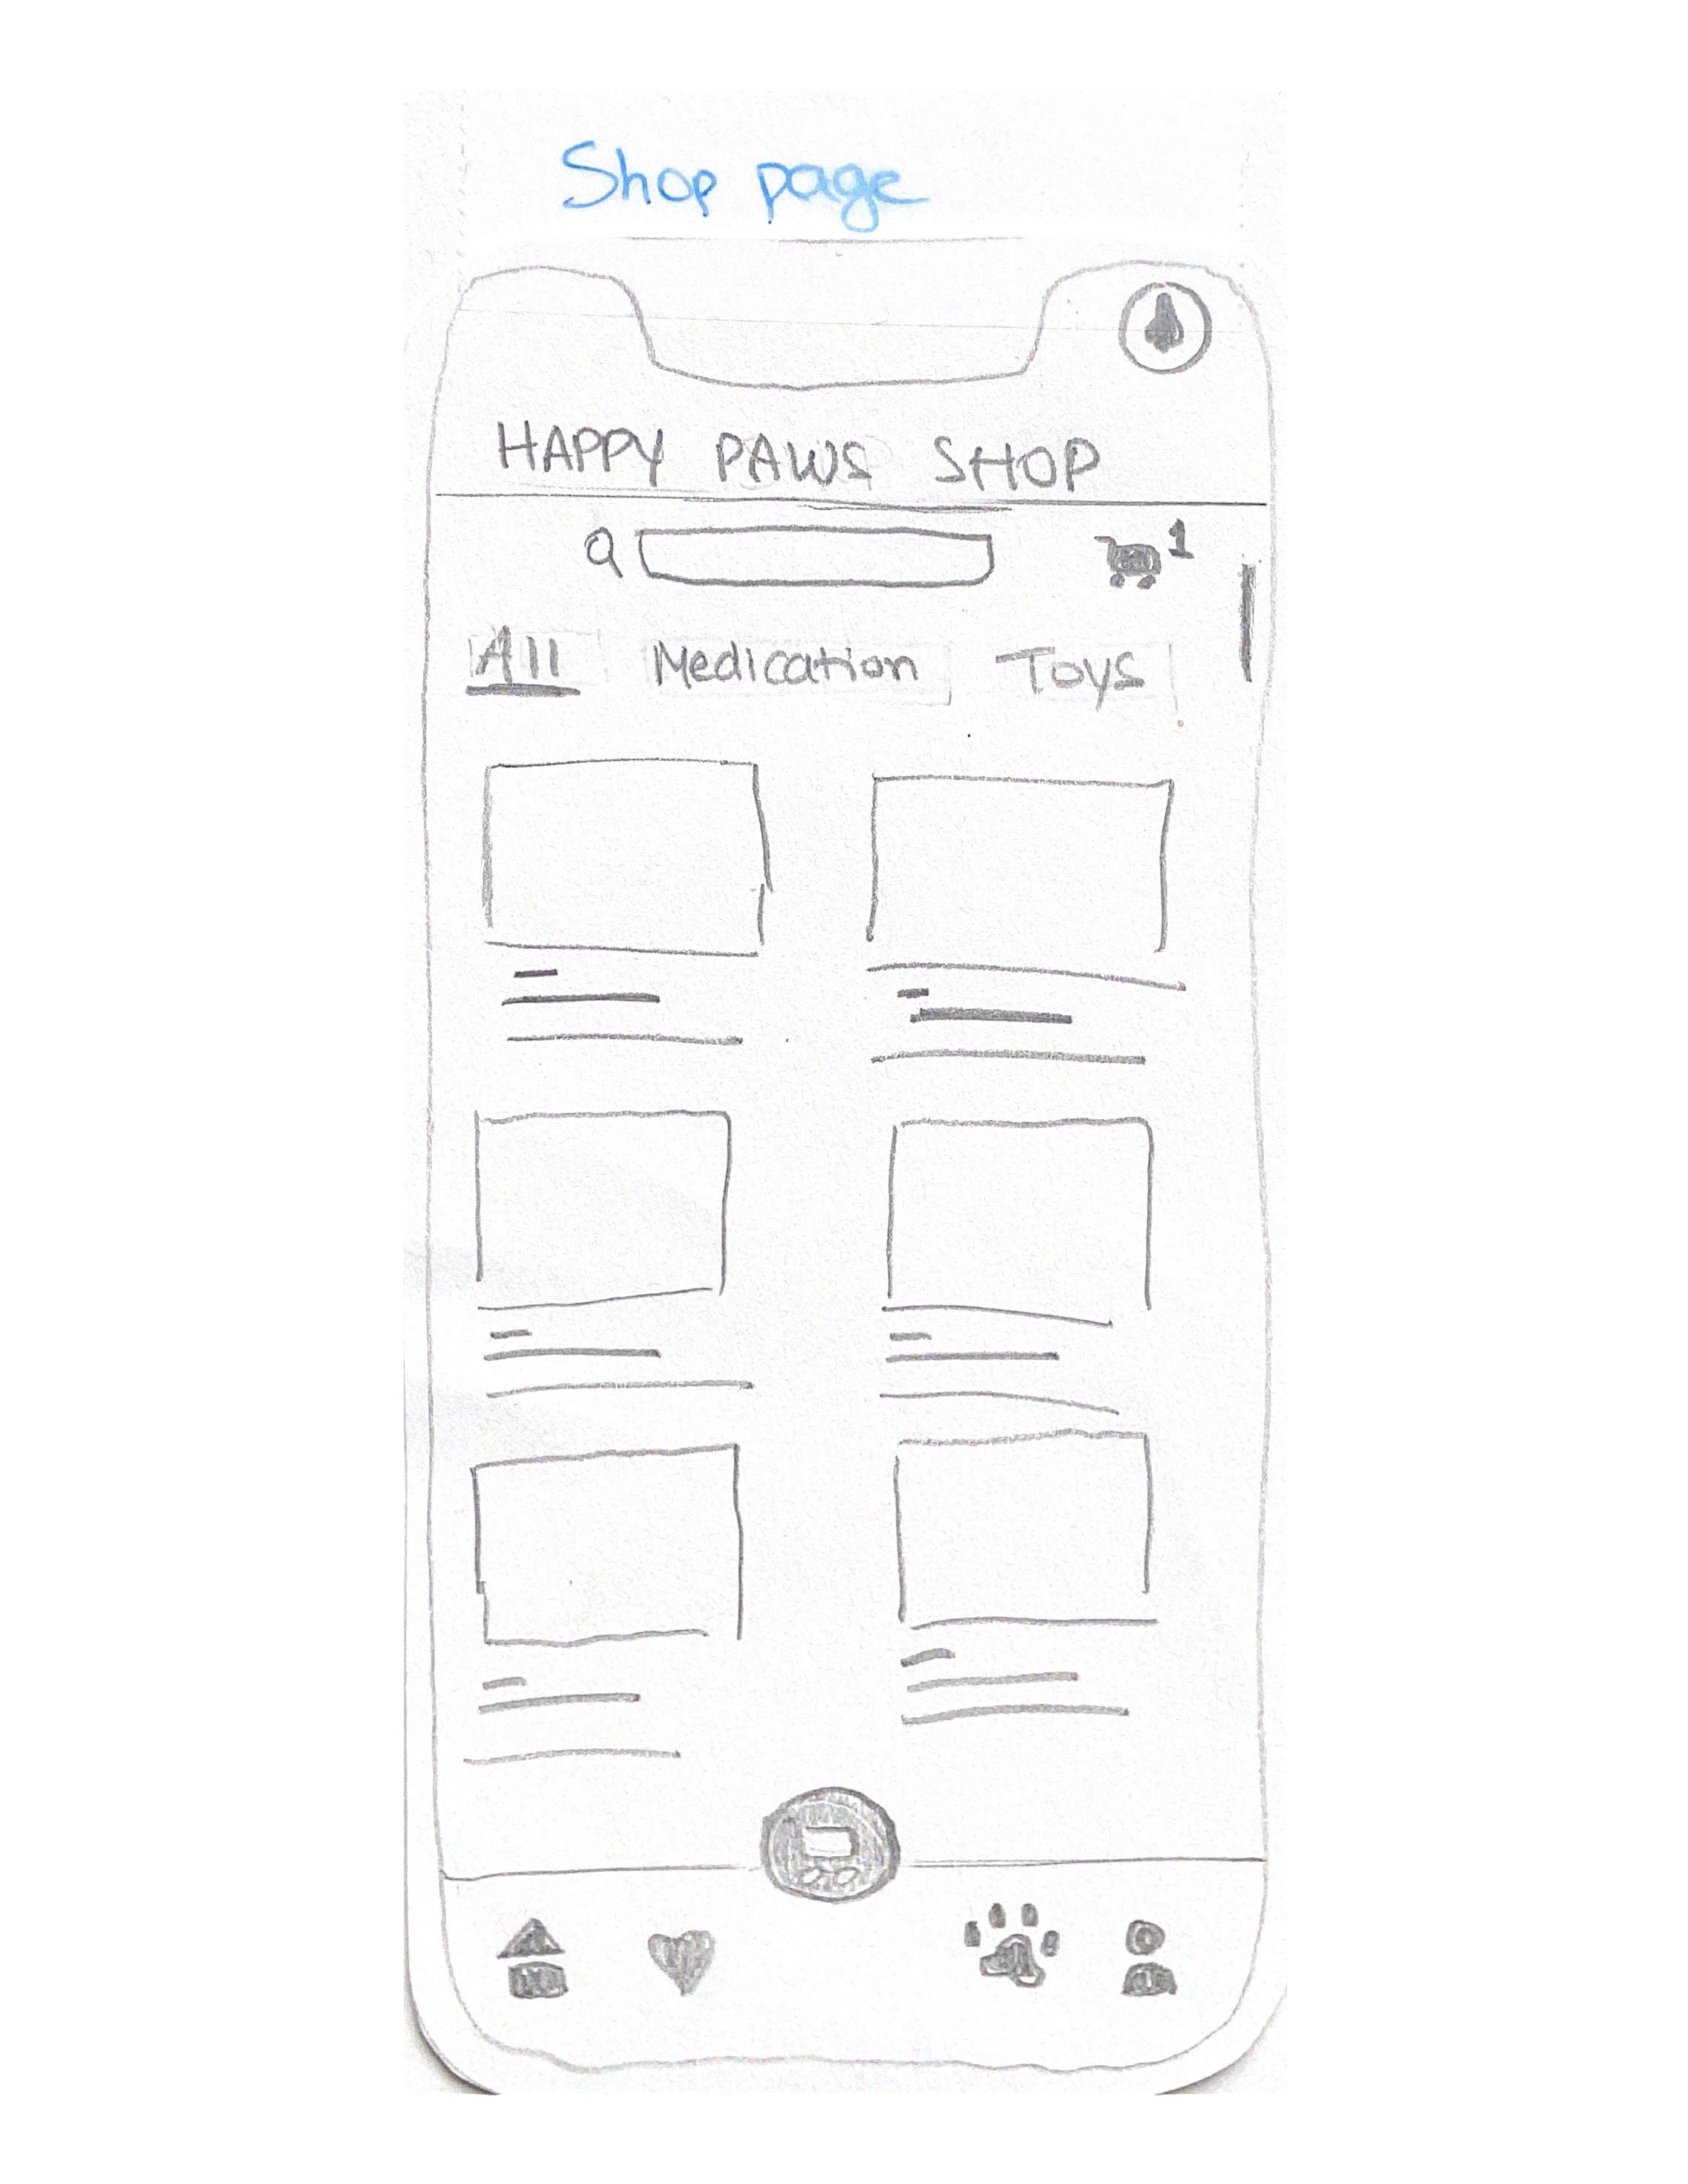 Shop page
HAPPY PAWS SHOP
1
All Medication Toys